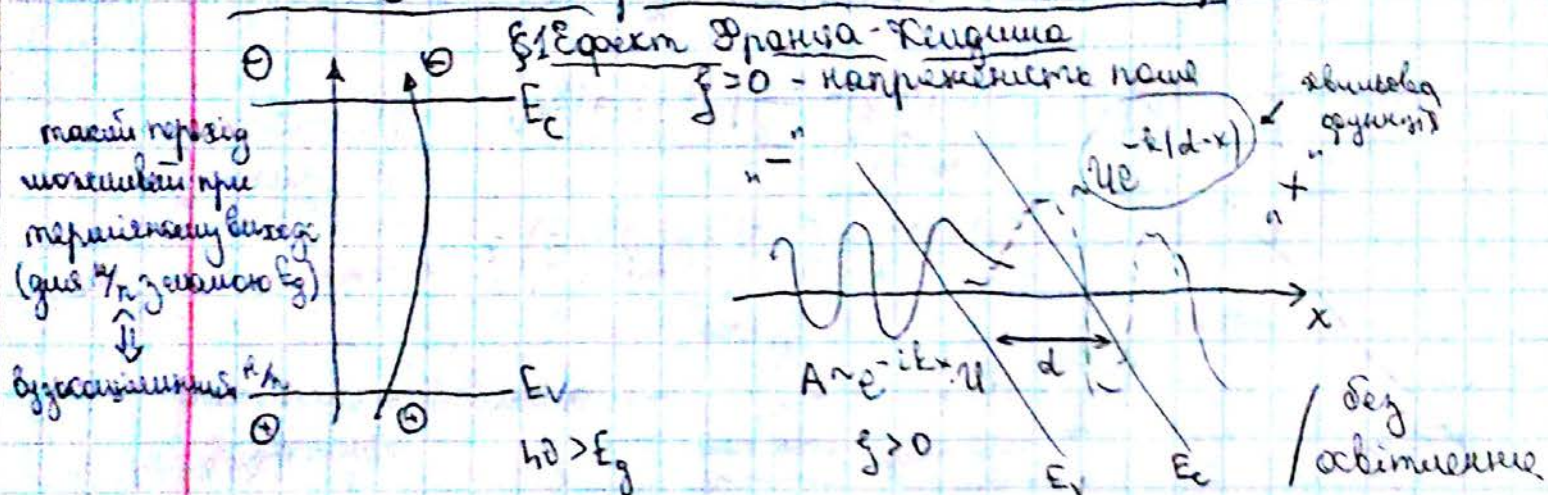 §1 Ефект Франца-Келдиша
ξ>0 - напруженість поля
⊖ ⊖
E_c
такий перехід
можливий при
термічному виході
(для н/п з малою E_g)
⇕
вузькощілинний н/п
E_v
⊕ ⊕
hν > E_g
хвильова
функція
"–"
~Ue^{-k(d-x)}
"+"
x
d
A~e^{-ikx}·U
ξ>0
E_v
E_c
без
освітлення